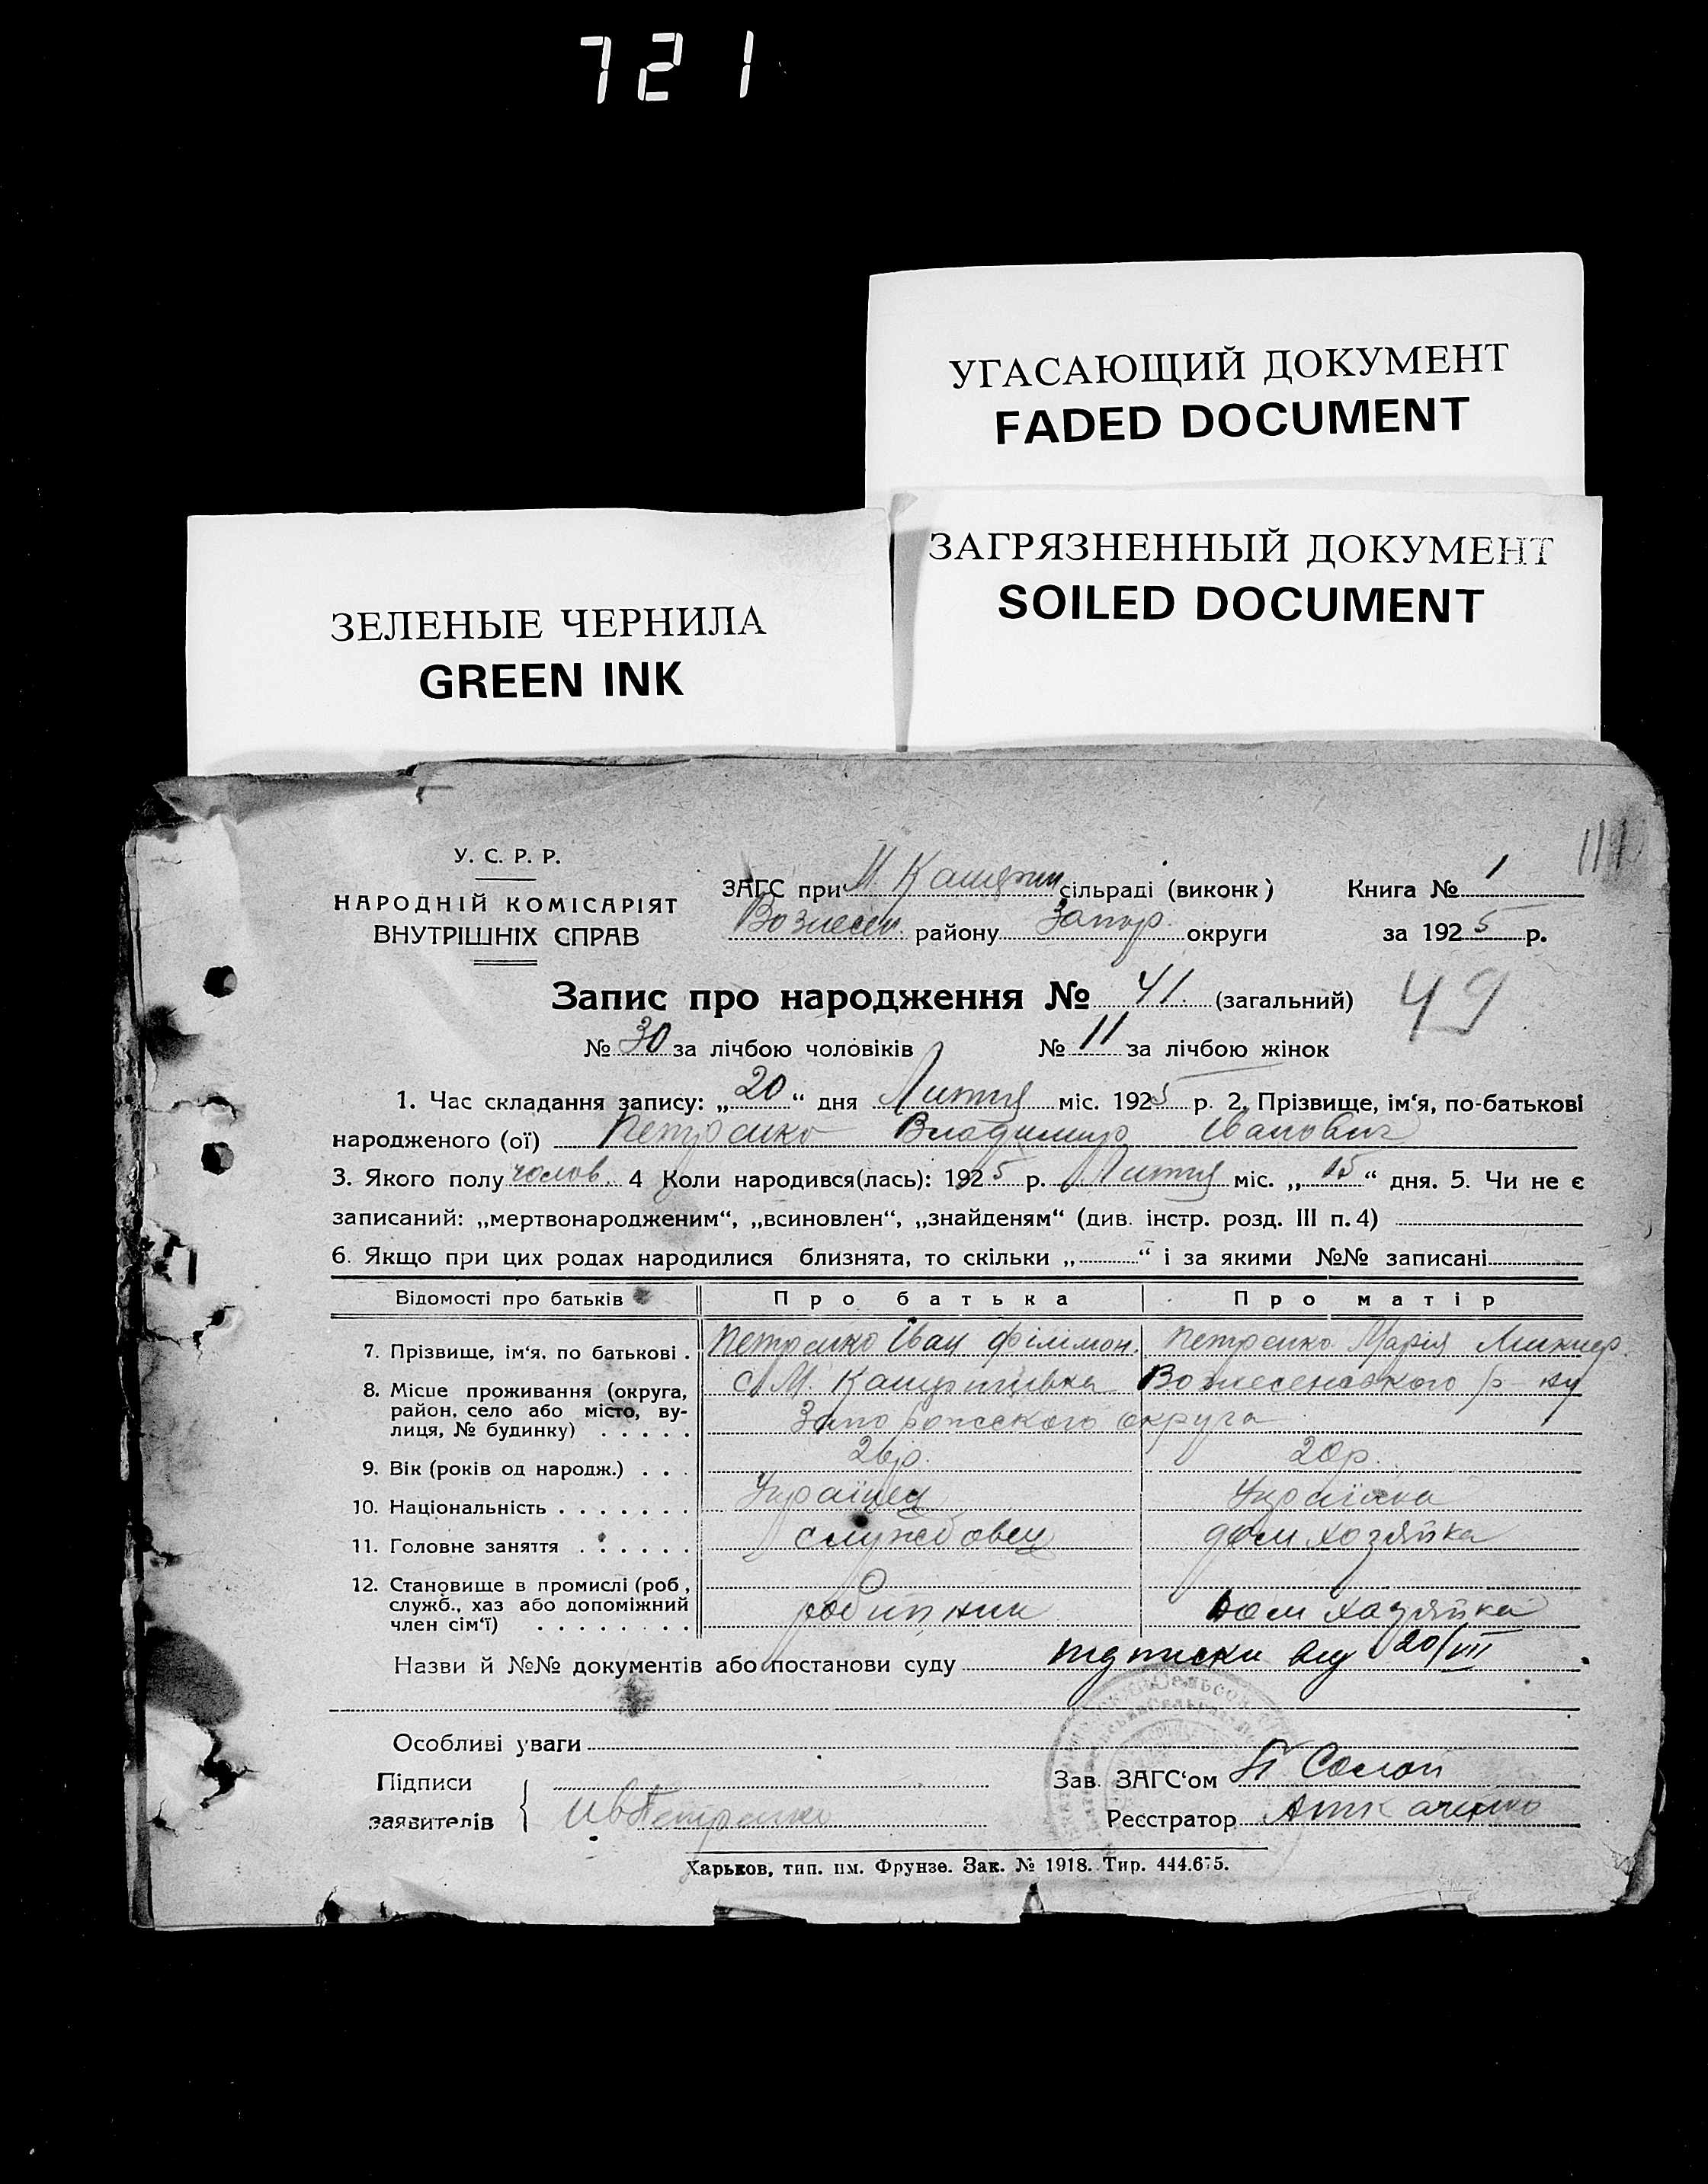 721
УГАСАЮЩИЙ ДОКУМЕНТ
FADED DOCUMENT
ЗАГРЯЗНЕННЫЙ ДОКУМЕНТ
SOILED DOCUMENT
ЗЕЛЕНЫЕ ЧЕРНИЛА
GREEN INK
У. С. Р. Р.
НАРОДНІЙ КОМІСАРІЯТ
ВНУТРІШНІХ СПРАВ
ЗАГС при М. сільраді (виконк) Книга № 1
Вознесен. району Запор. округи за 1925 р.
Запис про народження № 41. (загальний) 49
№ 30 за лічбою чоловіків № 11 за лічбою жінок
1. Час складання запису: „20“ дня Лютня міс. 1925 р. 2. Прізвище, ім‘я, по-батькові
народженого (ої) Петренко Владимир Іванович
3. Якого полу чолов. 4 Коли народився(лась): 1925 р. Лютня міс. „15“ дня. 5. Чи не є
записаний: „мертвонародженим“, „всиновлен“, „знайденям“ (див. інстр. розд. III п. 4)
6. Якщо при цих родах народилися близнята, то скільки „ “ і за якими №№ записані
Відомості про батьків Про батька Про матір
7. Прізвище, ім‘я, по батькові . Петренко Іван Філімон. Петренко Марія
8. Місце проживання (округа, с М. Вознесенского р-ну
район, село або місто, ву- Запорожского округа
лиця, № будинку) . . . . .
9. Вік (років од народж.) . . . 26р. 20р.
10. Національність . . . . . . . Українец Українка
11. Головне заняття . . . . . . службовец дом хозяйка
12. Становище в промислі (роб.,
служб., хаз або допоміжний робітник дом хазяйка
член сім‘ї) . . . . . . . .
Назви й №№ документів або постанови суду підписки від 20/III
Особливі уваги
Підписи Зав. ЗАГС‘ом
заявителів Ив Петренко Реєстратор А Ткаченко
Харьков, тип. им. Фрунзе. Зак. № 1918. Тир. 444.675.